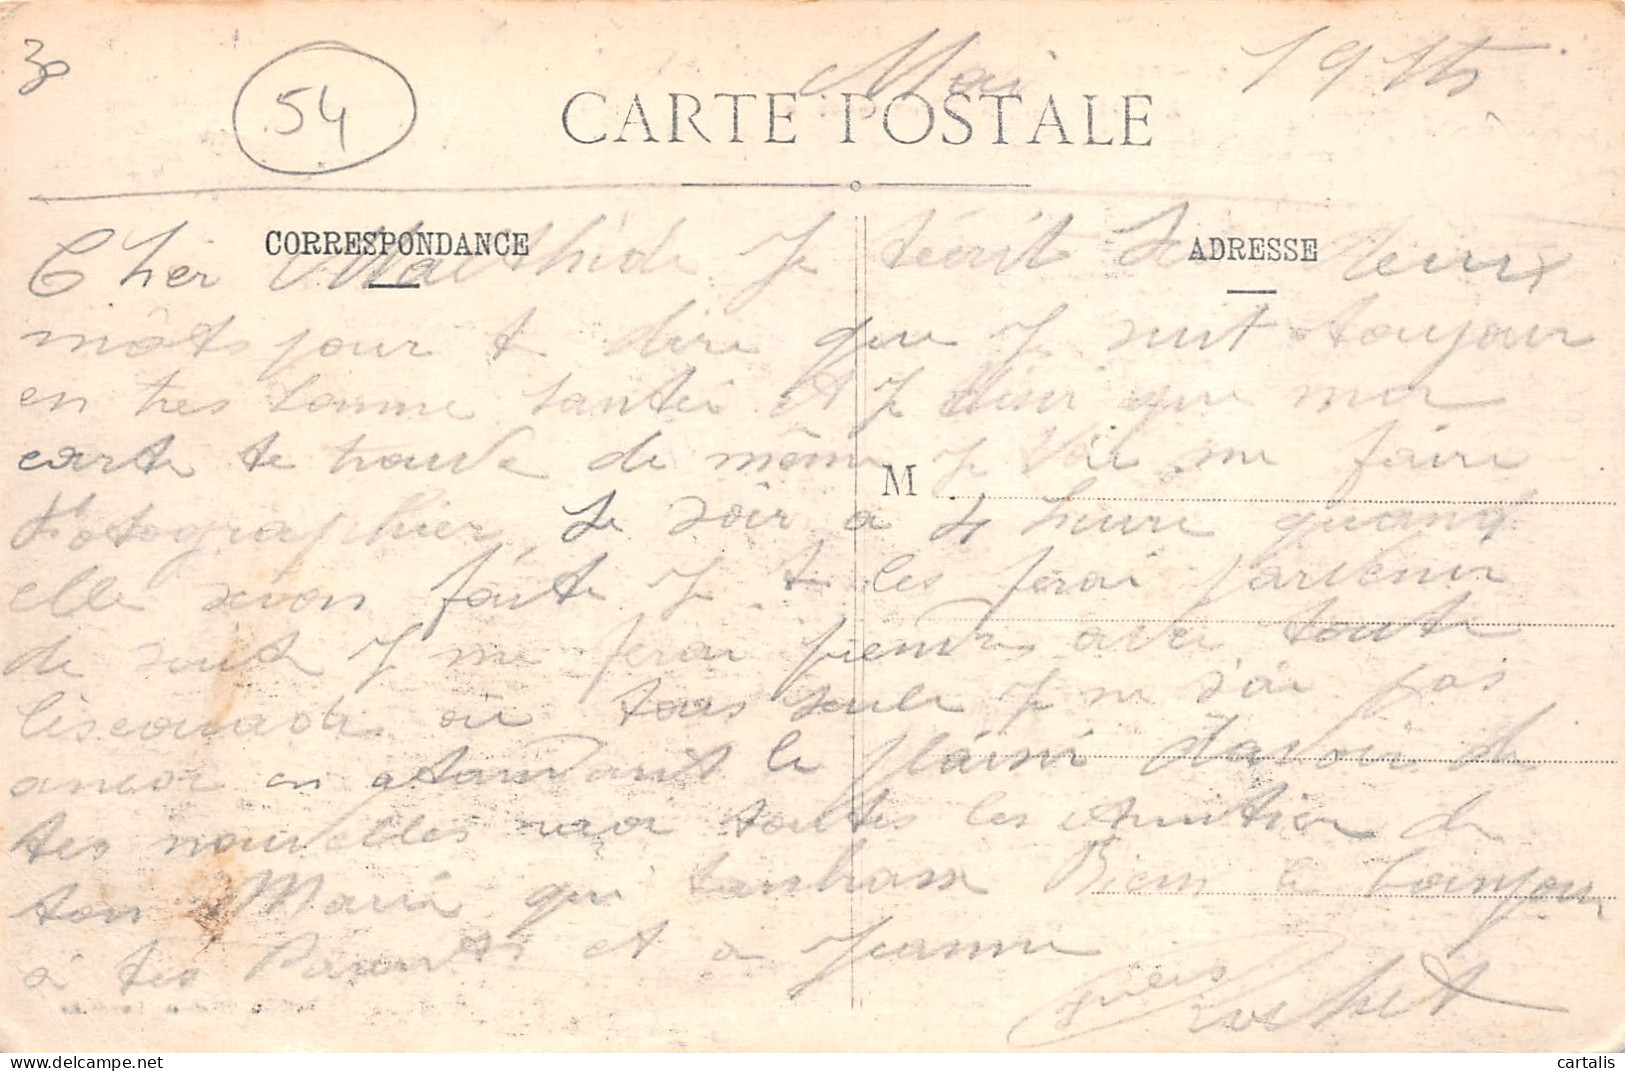 30
54
Mai 1915
CARTE POSTALE
CORRESPONDANCE
ADRESSE
M
Cher Mathide Je técrit deux
môts pour te dire que Je suit toujour
en tres bonne santé et Je désir que ma
carte te trouve de même Je vai me faire
Photographier se soir a 4 heure quand
elle seron faite Je te les ferai parvenir
de suite Je me ferai prendre avec toute
lescouade ou tous seule Je ne sai pas
ancor en atandant le plaisir davoir de
tes nouvelles toutes les de
ton Mari qui tanbrasse Bien le bonjour
à tes Parents et a Jeanne
Jules Rochet
cartalis